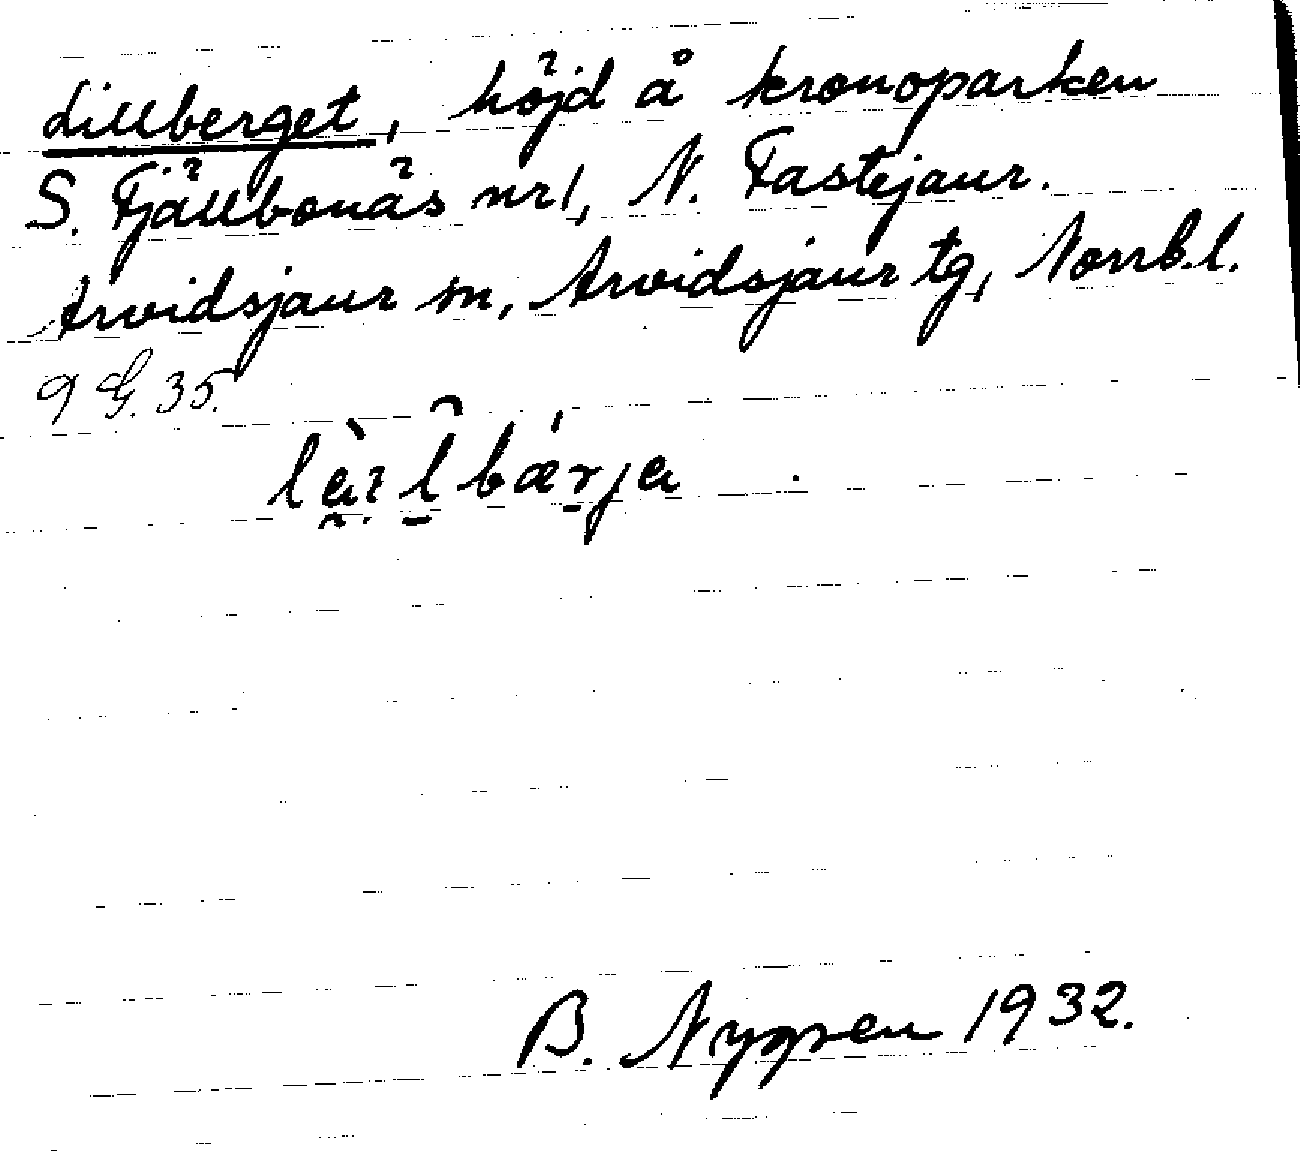 Lillberget, höjd å kronoparken
S. Fjällbonäs nr 1, N. Fastejaur.
Arvidsjaur sn, Arvidsjaur tg, Norrb.l.
9 G. 35.
B. Nygren 1932.